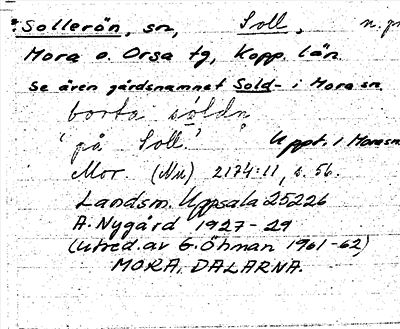 *Sollerön, sn, Soll, n. pr
Mora o. Orsa tg, Kopp. län
Se även gårdsnamnet Sold- i Mora sn.
borta söldn
'på Soll.' Uppt. i Mora sn
Mor. (Nu) 2174:11, s. 56.
Landsm. Uppsala 25226
A. Nygård 1927-29
(utred. av G. Öhman 1961-62)
MORA, DALARNA.